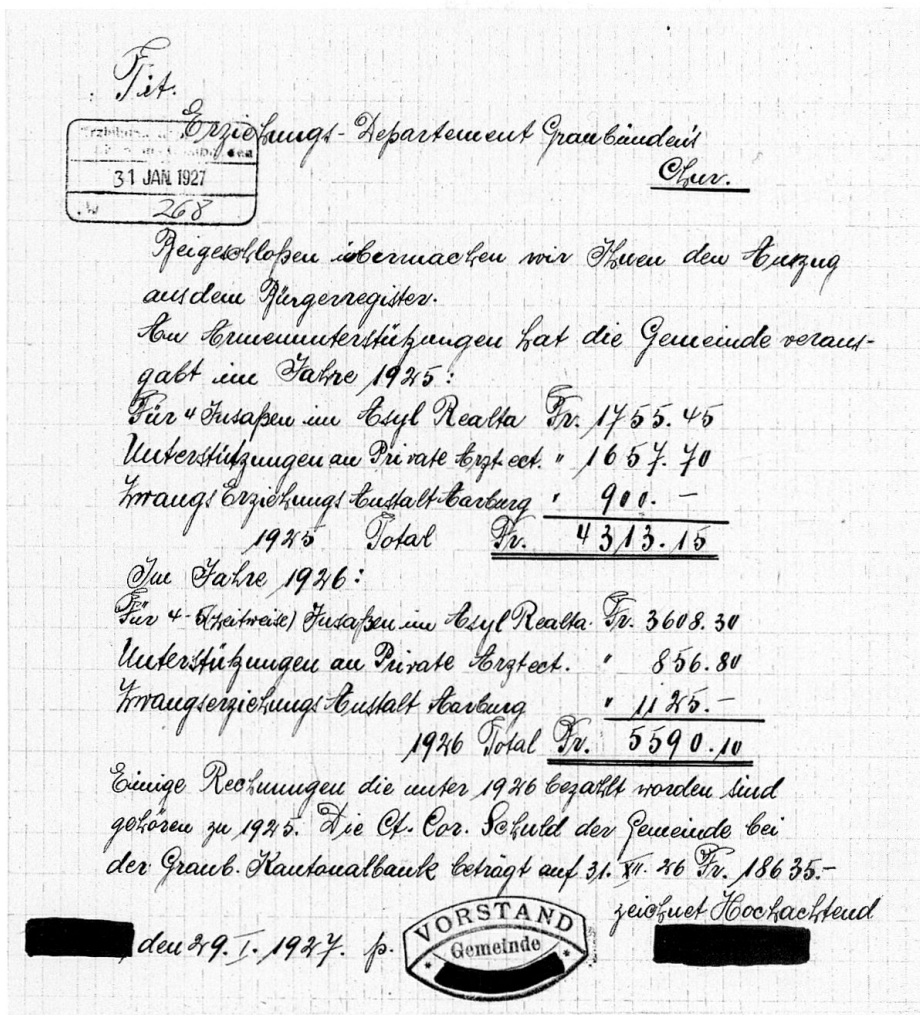 Tit.
Erziehungs-Departement Graubünden's
Chur.
31 JAN. 1927
No 268
Beigeschloßen übermachen wir Ihnen den Auszug
aus dem Bürgerregister.
An Armenunterstützungen hat die Gemeinde veraus-
gabt im Jahre 1925:
Für 4 Insaßen im Asyl Realta Fr. 1755.45
Unterstützungen an Private Arzt ect. " 1657.70
Zwangs Erziehungs Anstalt Aarburg " 900.–
1925 Total Fr. 4313.15
Im Jahre 1926:
Für 4-5 (zeitweise) Insaßen im Asyl Realta. Fr. 3608.30
Unterstützungen an Private Arzt ect. " 856.80
Zwangserziehungs Anstalt Aarburg " 1125.–
1926 Total Fr. 5590.10
Einige Rechnungen die unter 1926 bezahlt worden sind
gehören zu 1925. Die Ct. Cor. Schuld der Gemeinde bei
der Graub. Kantonalbank beträgt auf 31. XII. 26 Fr. 18635.–
zeichnet Hochachtend
den 29. I. 1927. p.
VORSTAND
Gemeinde